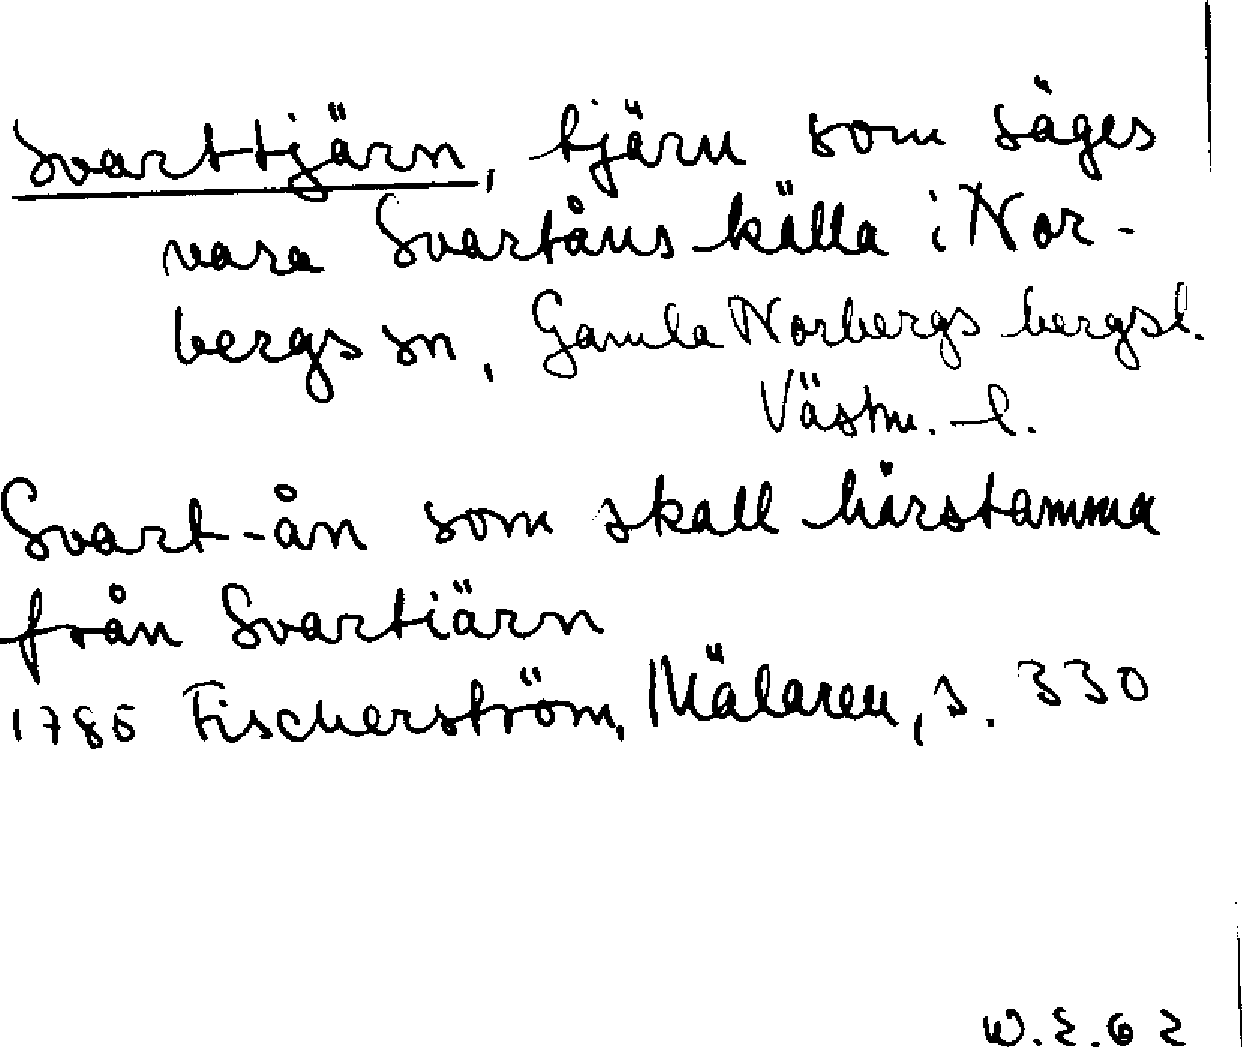 Svarttjärn, tjärn som säges
vara Svartåns källa i Nor-
bergs sn, Gamla Norbergs bergsl.
Västm. l.
Svart-ån som skall härstamma
från Svartiärn
1785 Fischerström, Mälaren, s. 330
W.E. 62